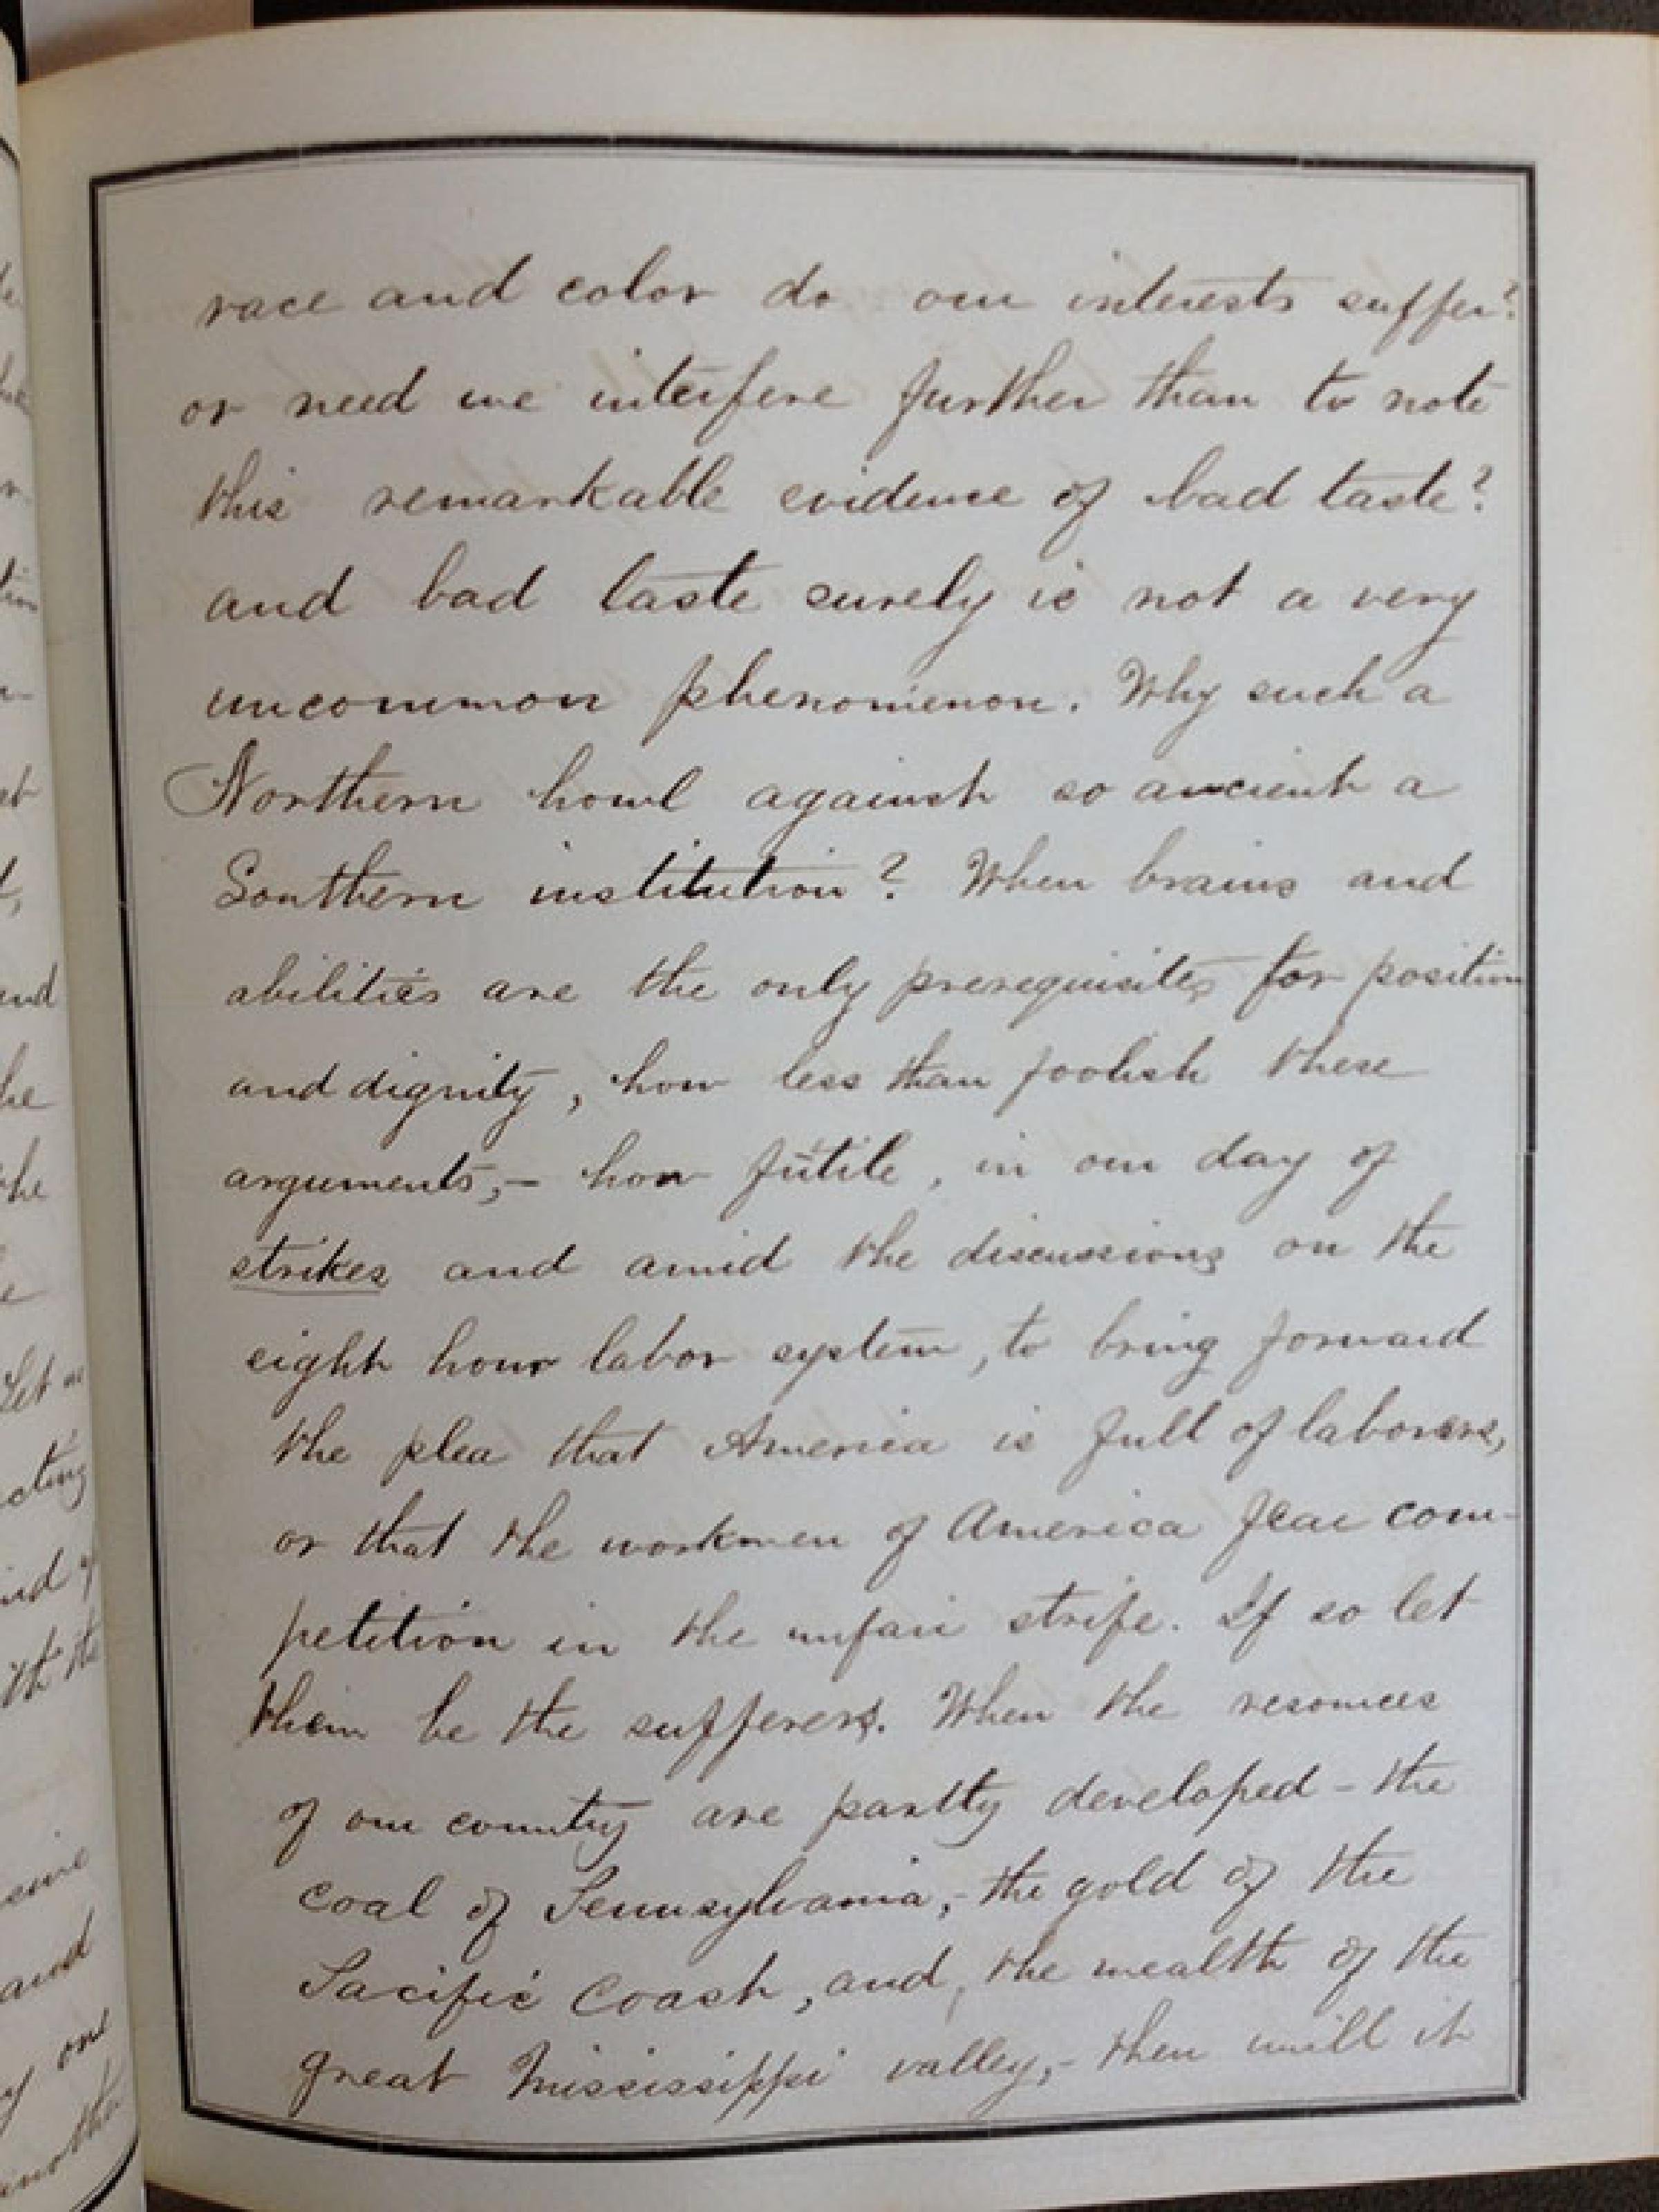 race and color do our interests suffer?
or need we interfere further than to note
this remarkable evidence of bad taste?
and bad taste surely is not a very
uncommon phenomenon. Why such a
Northern howl against so ancient a
Southern institution? When brains and
abilities are the only prerequisites for position
and dignity, how less than foolish these
arguments,- how futile, in our day of
strikes and amid the discussions on the
eight hour labor system, to bring forward
the plea that America is full of laborers,
or that the workmen of America fear com-
petition in the unfair strife. If so let
them be the sufferers. When the resources
of our country are partly developed - the
coal of Pennsylvania,- the gold of the
Pacific Coast, and, the wealth of the
great Mississippi valley,- then will it